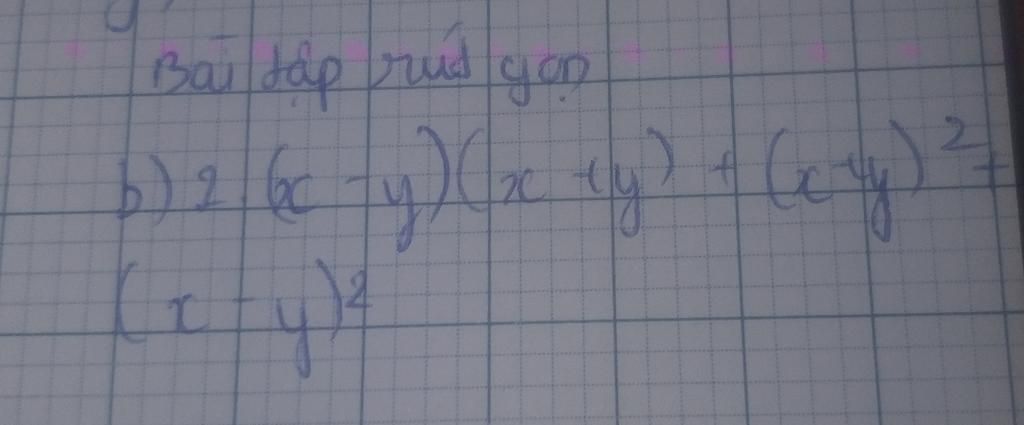 Bài tập rút gọn
b) 2 (x - y)(x + y) + (x + y)² +
(x - y)²